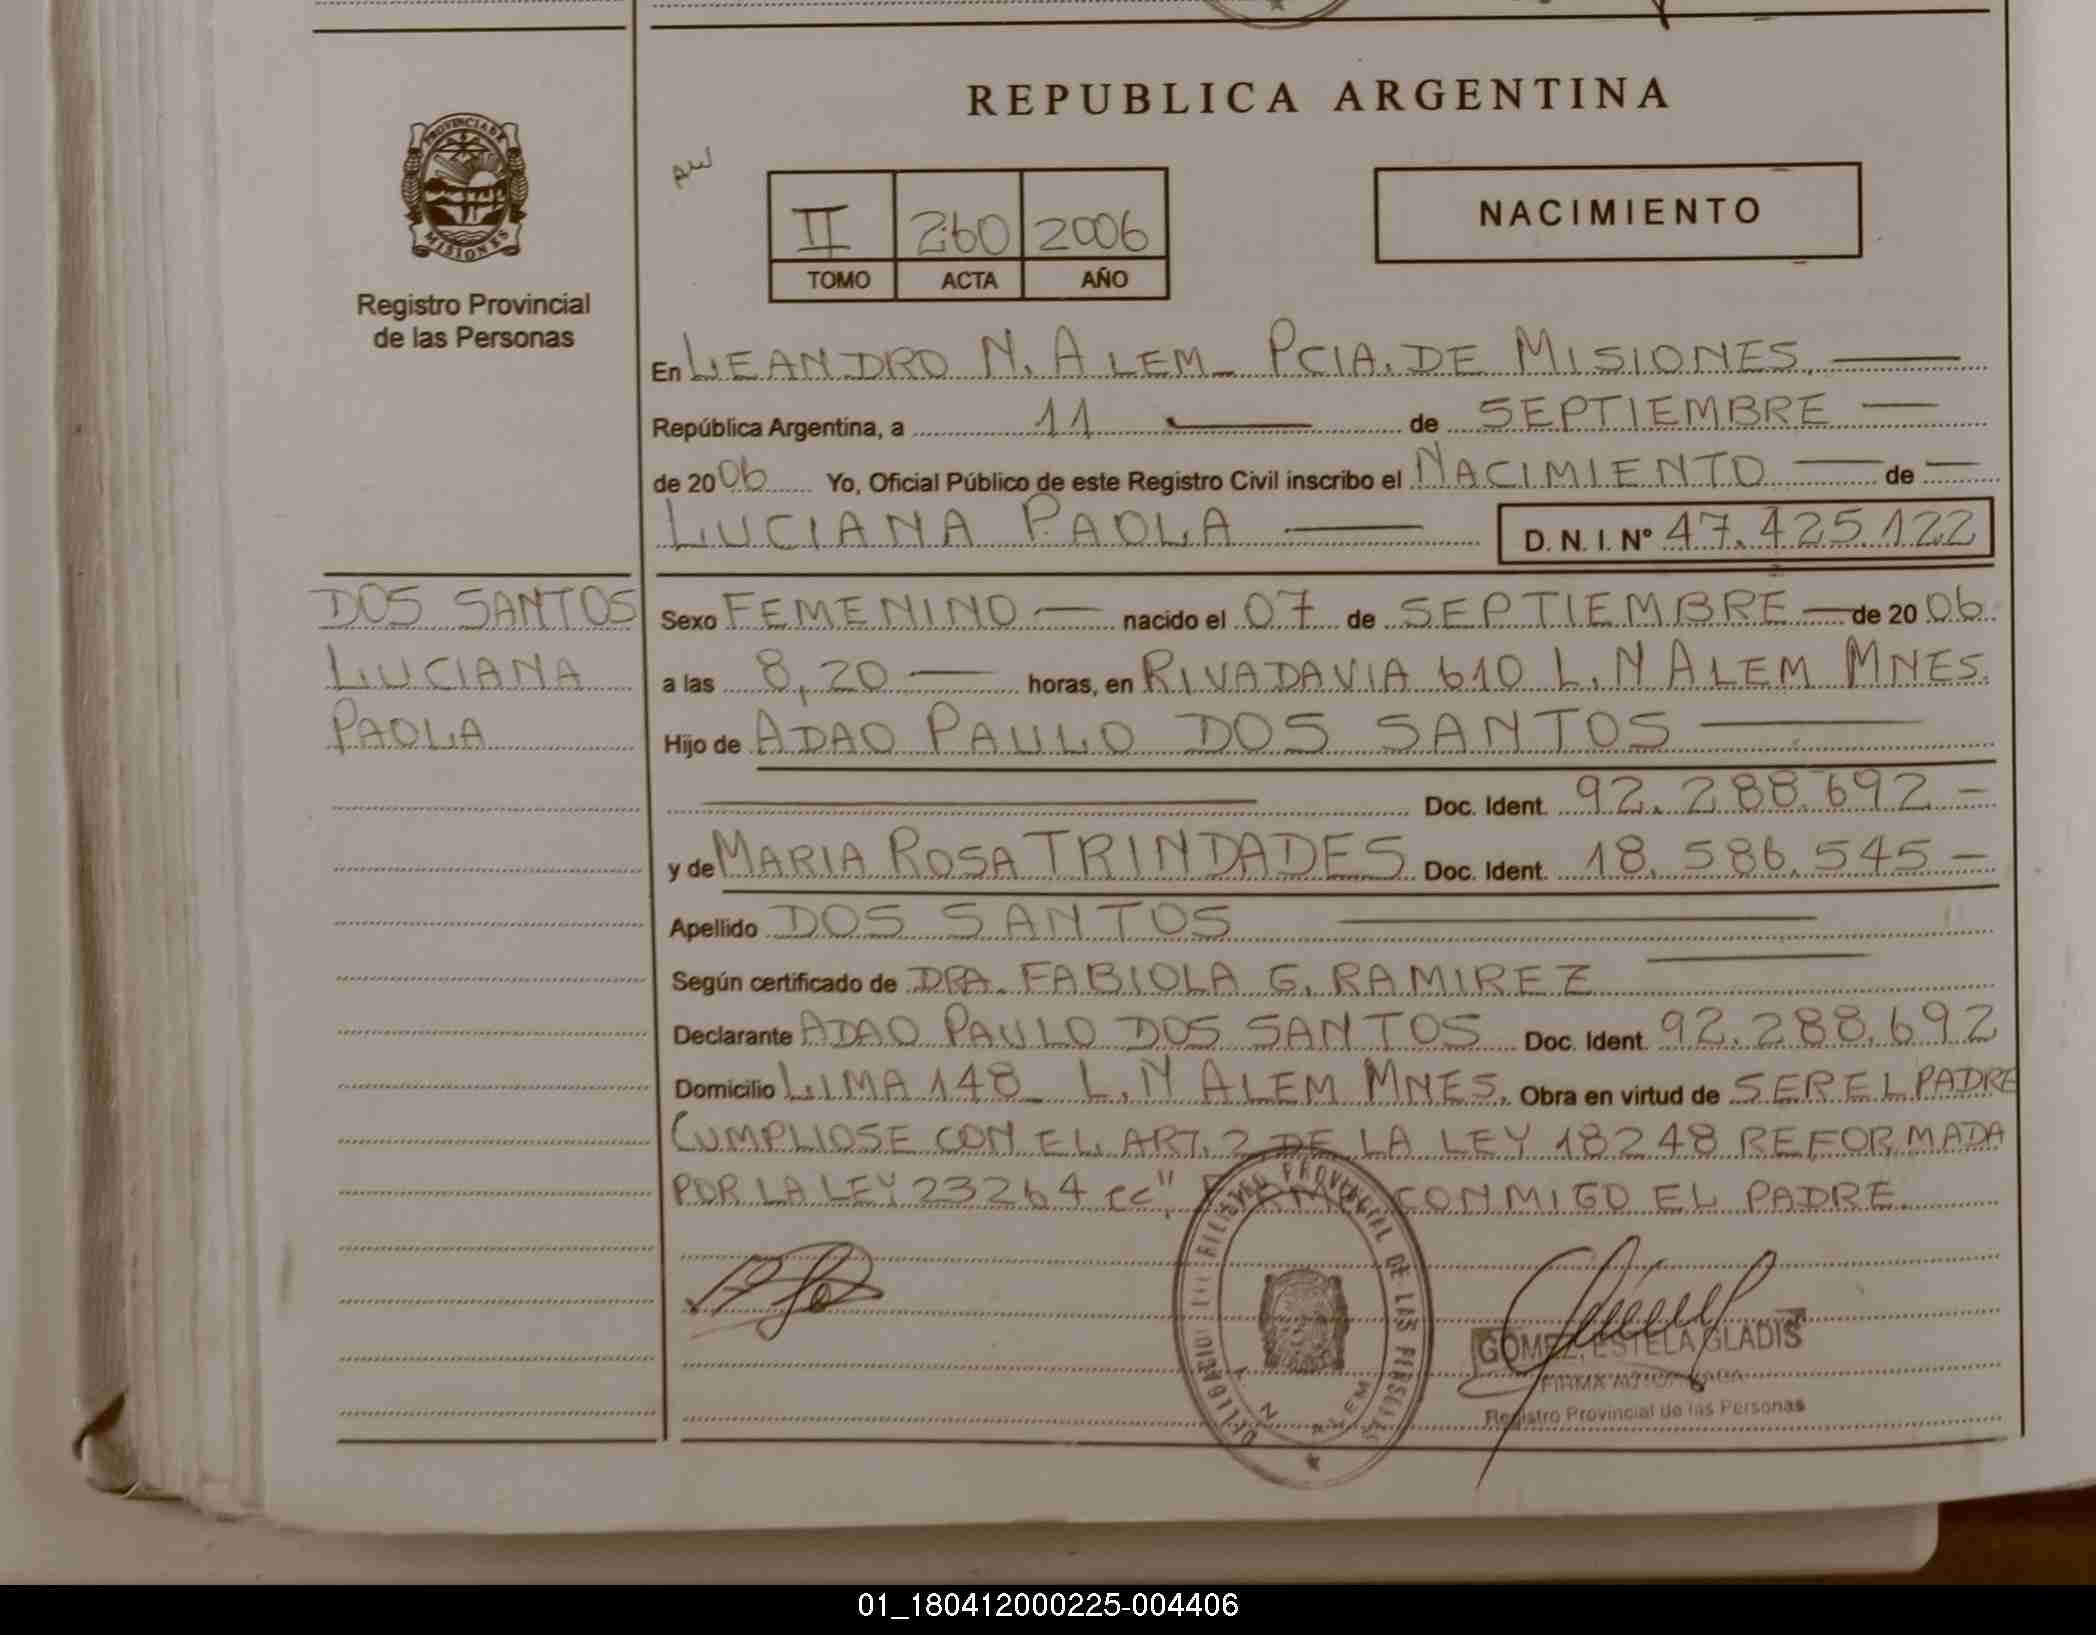 REPUBLICA ARGENTINA
PROVINCIA DE
MISIONES
Registro Provincial
de las Personas
AW
II 260 2006
TOMO ACTA AÑO
NACIMIENTO
En LEANDRO N. ALEM_ PCIA. DE MISIONES.
República Argentina, a 11 de SEPTIEMBRE
de 2006 Yo, Oficial Público de este Registro Civil inscribo el NACIMIENTO de
LUCIANA PAOLA D. N. I. Nº 47.425.122
DOS SANTOS
LUCIANA
PAOLA
Sexo FEMENINO nacido el 07 de SEPTIEMBRE de 2006
a las 8,20 horas, en RIVADAVIA 610 L. N ALEM MNES.
Hijo de ADAO PAULO DOS SANTOS
Doc. Ident. 92.288.692
y de MARIA ROSA TRINDADES Doc. Ident. 18.586.545
Apellido DOS SANTOS
Según certificado de DRA. FABIOLA G. RAMIREZ
Declarante ADAO PAULO DOS SANTOS Doc. Ident. 92.288.692
Domicilio LIMA 148_ L. N ALEM MNES. Obra en virtud de SER EL PADRE
CUMPLIOSE CON EL ART. 2 DE LA LEY 18248 REFORMADA
POR LA LEY 23264 CONMIGO EL PADRE.
PROVINCIAL DE LAS
N ALEM
GOMEZ, ESTELA GLADIS
FIRMA AUTORIZADA
Registro Provincial de las Personas
01_180412000225-004406